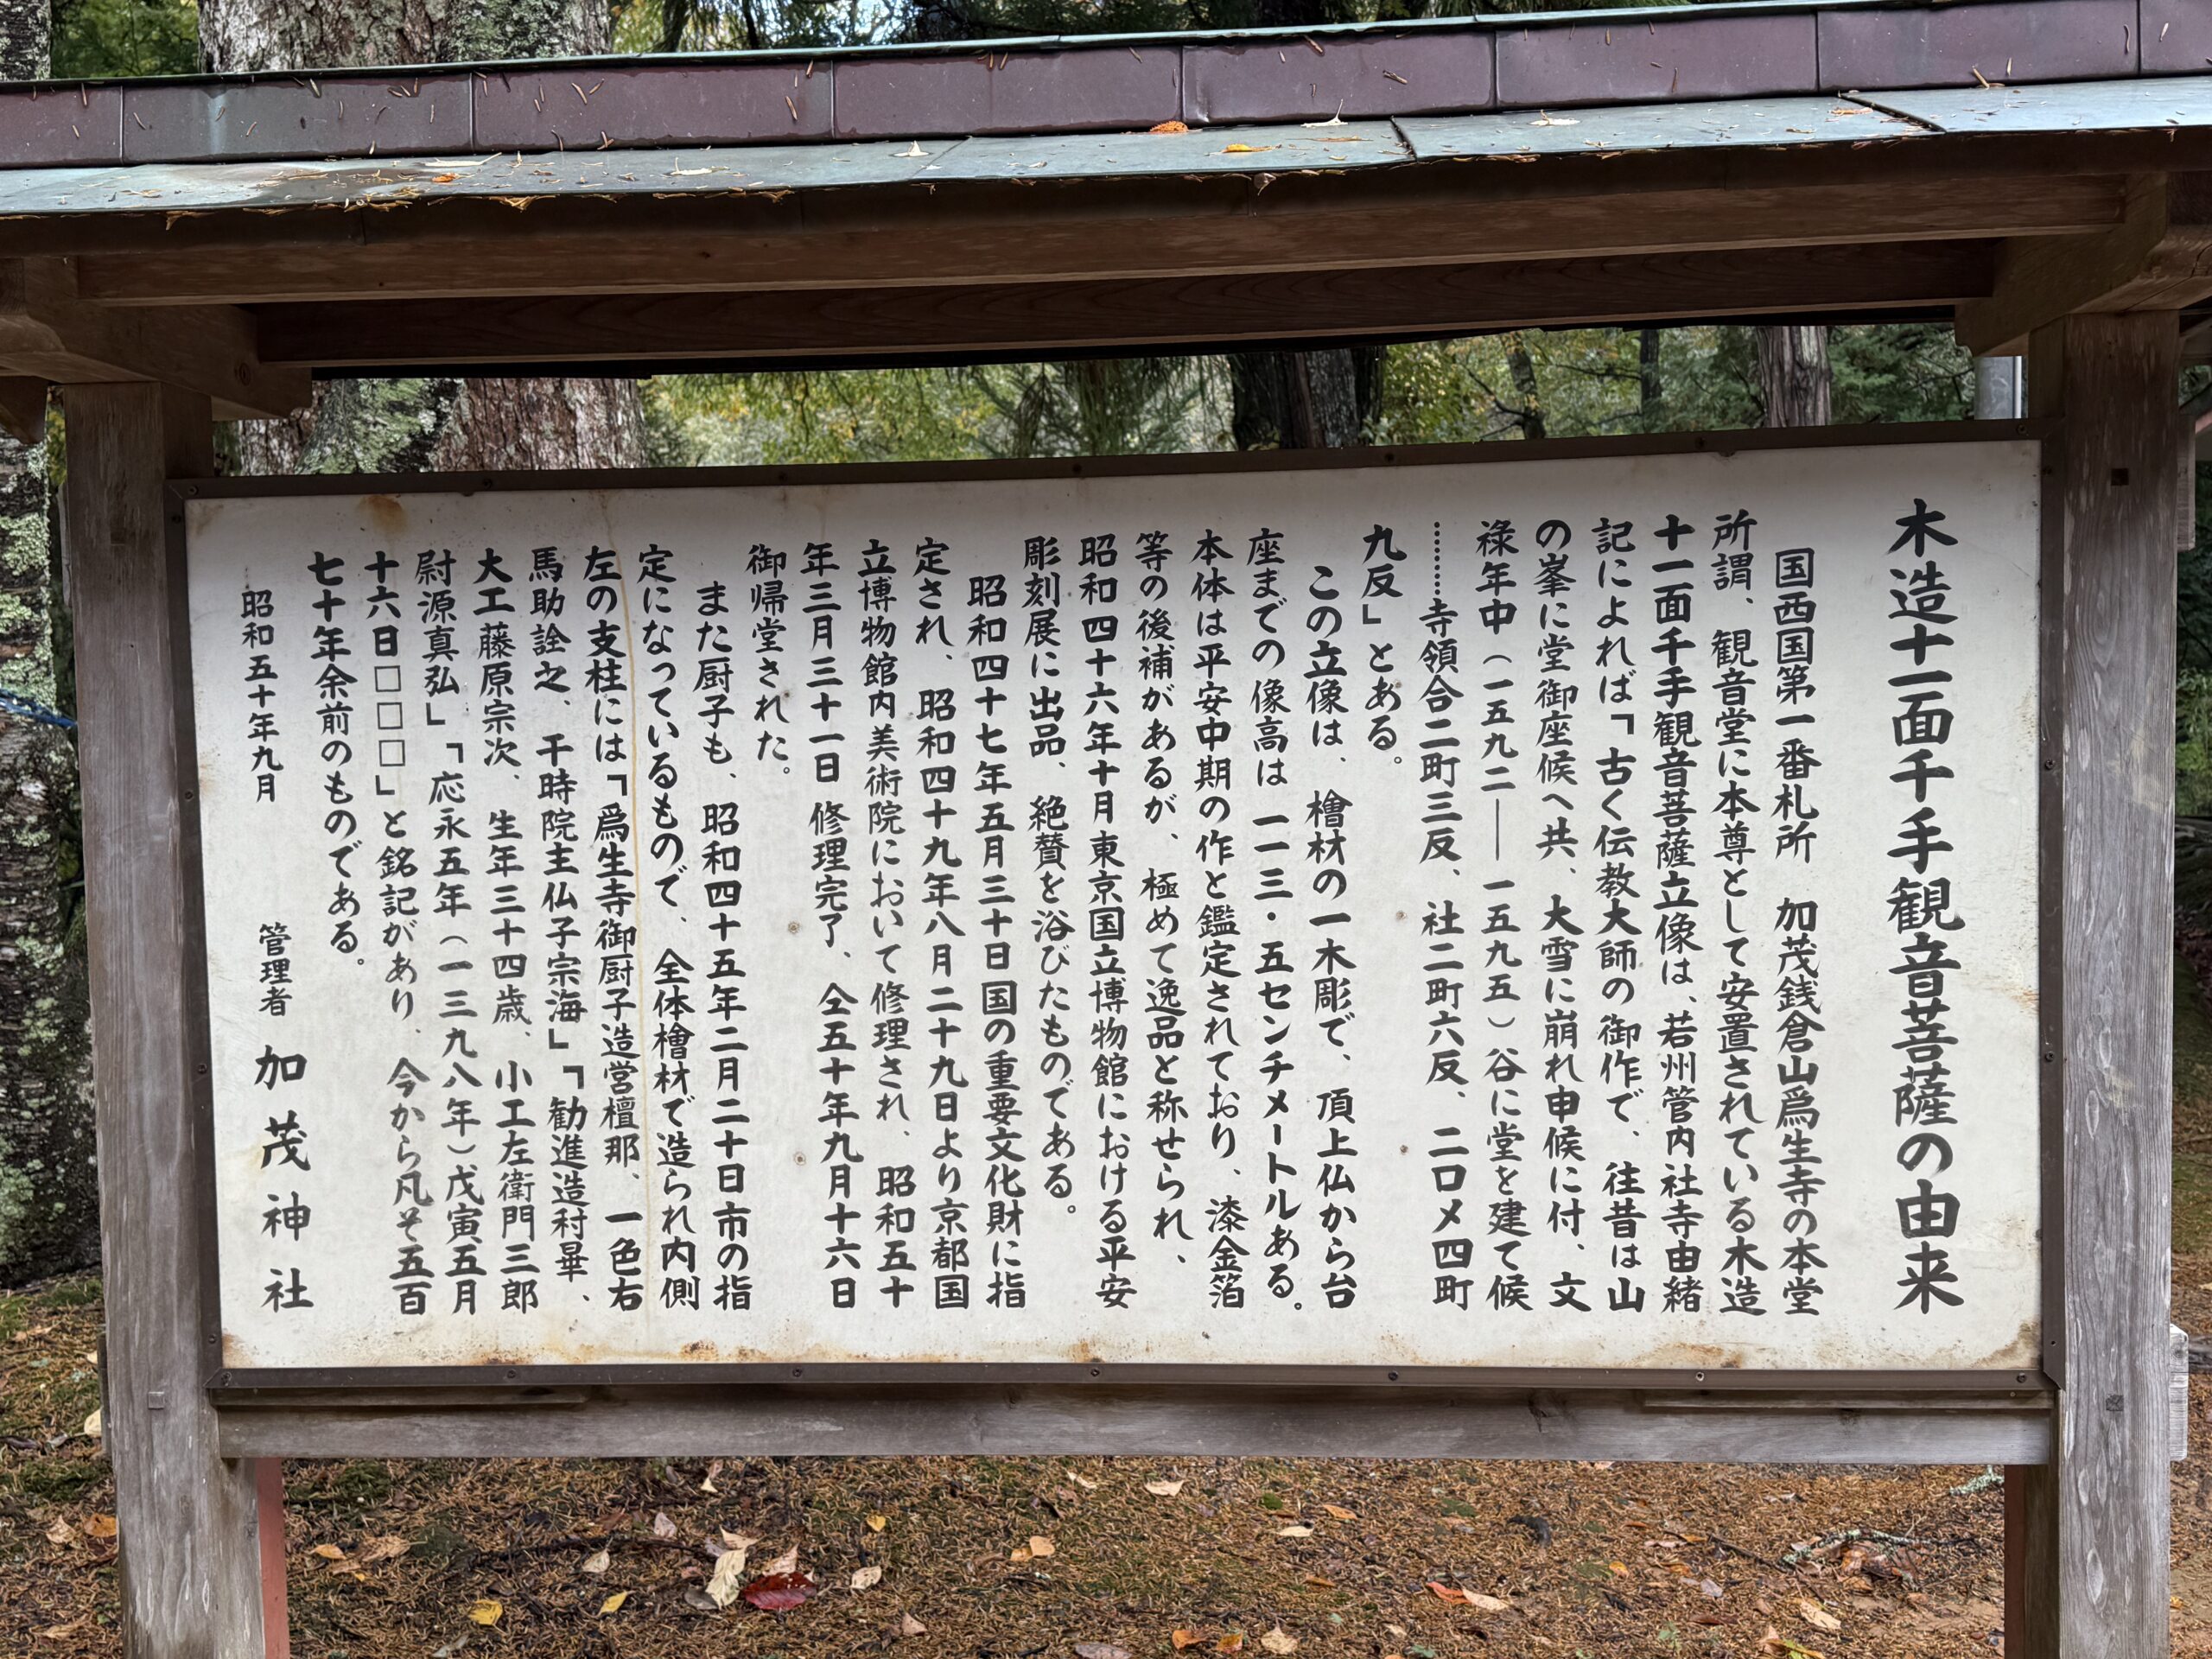 木造十一面千手観音菩薩の由来
国西国第一番札所　加茂銭倉山爲生寺の本堂
所謂、観音堂に本尊として安置されている木造
十一面千手観音菩薩立像は、若州管内社寺由緒
記によれば「古く伝教大師の御作で、往昔は山
の峯に堂御座候へ共、大雪に崩れ申候に付、文
祿年中（一五九二――一五九五）谷に堂を建て候
………寺領合二町三反、社二町六反、二口〆四町
九反」とある。
この立像は、檜材の一木彫で、頂上仏から台
座までの像高は一一三・五センチメートルある。
本体は平安中期の作と鑑定されており、漆金箔
等の後補があるが、極めて逸品と称せられ、
昭和四十六年十月東京国立博物館における平安
彫刻展に出品、絶賛を浴びたものである。
昭和四十七年五月三十日国の重要文化財に指
定され、昭和四十九年八月二十九日より京都国
立博物館内美術院において修理され、昭和五十
年三月三十一日修理完了、仝五十年九月十六日
御帰堂された。
また厨子も、昭和四十五年二月二十日市の指
定になっているもので、全体檜材で造られ内側
左の支柱には「爲生寺御厨子造営檀那、一色右
馬助詮之、干時院主仏子宗海」「勧進造村畢、
大工藤原宗次、生年三十四歳、小工左衛門三郎
尉源真弘」「応永五年（一三九八年）戊寅五月
十六日□□□」と銘記があり、今から凡そ五百
七十年余前のものである。
昭和五十年九月　管理者　加茂神社